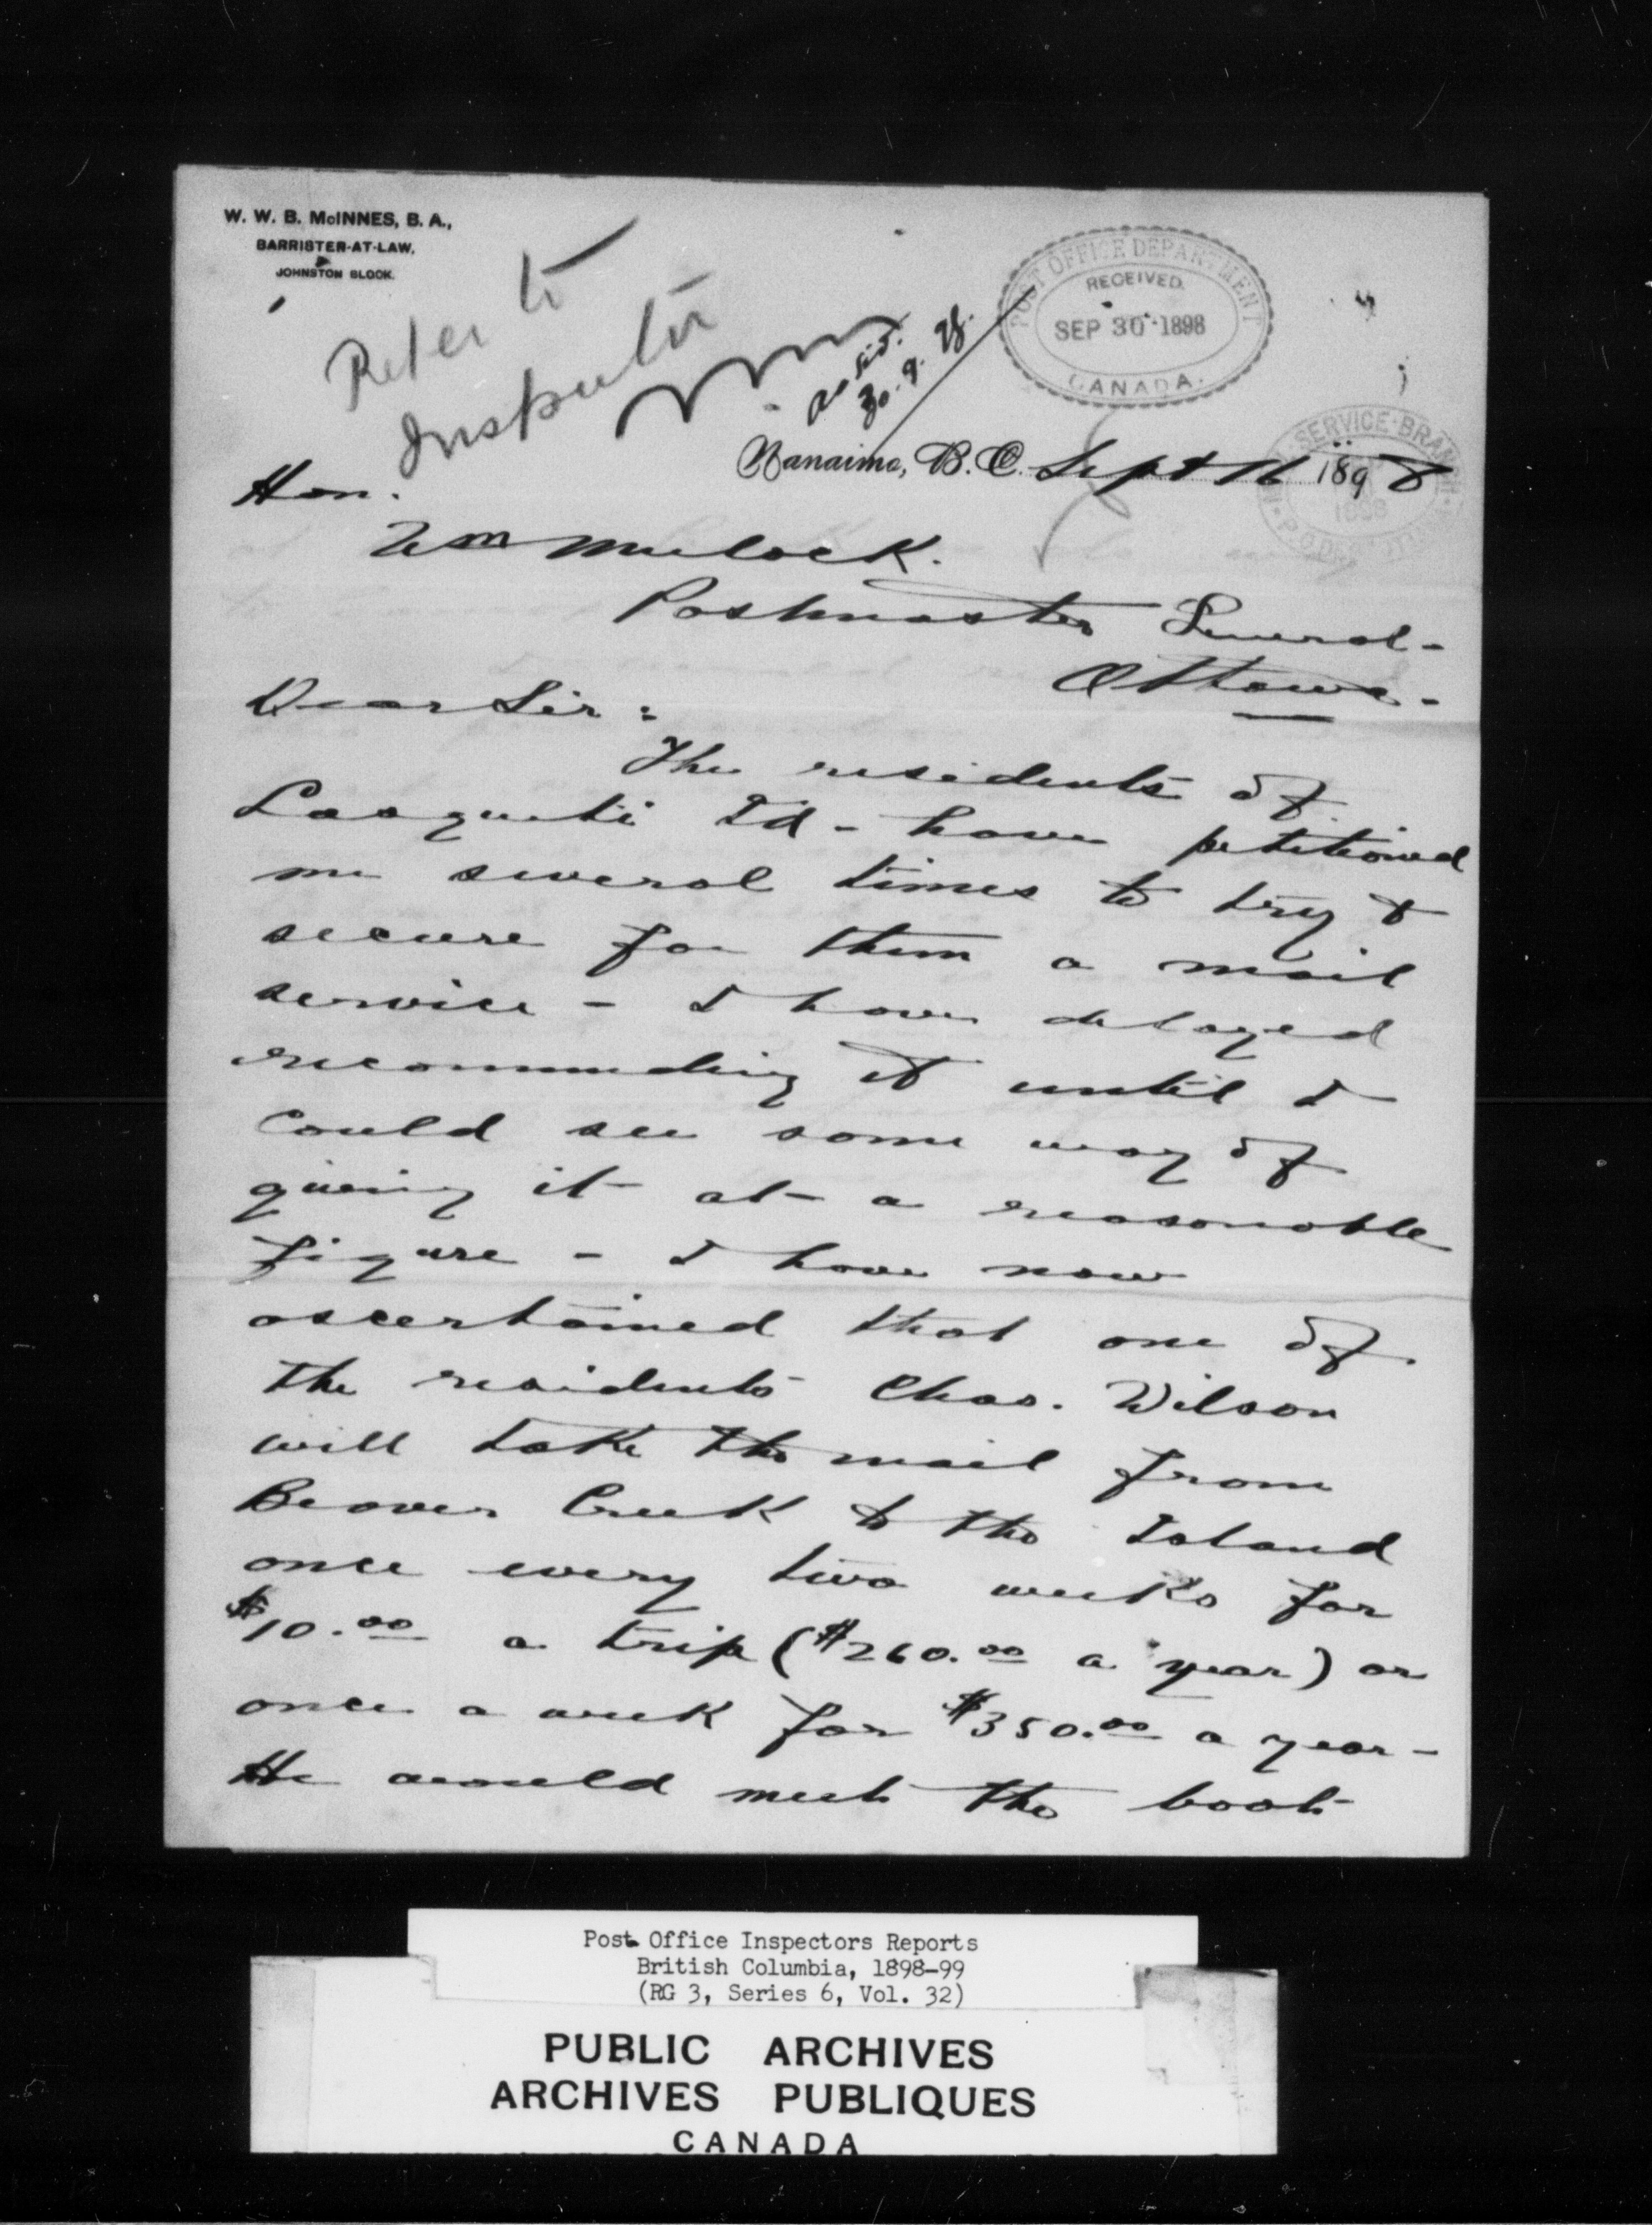 W. W. B. McINNES, B. A.,
BARRISTER-AT-LAW.
JOHNSTON BLOCK.
Refer to
Inspector
30.9.98.
POST OFFICE DEPARTMENT
RECEIVED.
SEP 30 1898
CANADA.
SERVICE BRANCH
1898
Nanaimo, B. C. Sept 16 1898
Hon.
Wm Mulock.
Postmaster General-
Ottawa-
Dear Sir:
The residents of
Lasqueti Id - have petitioned
me several times to try &
secure for them a mail
service - I have delayed
recommending it until I
could see some way of
giving it at a reasonable
figure - I have now
ascertained that one of
the residents Chas. Wilson
will take the mail from
Beaver Creek to the Island
once every two weeks for
$10.00 a trip ($260.00 a year) or
once a week for $350.00 a year-
He would meet the boat
Post Office Inspectors Reports
British Columbia, 1898-99
(RG 3, Series 6, Vol. 32)
PUBLIC ARCHIVES
ARCHIVES PUBLIQUES
CANADA